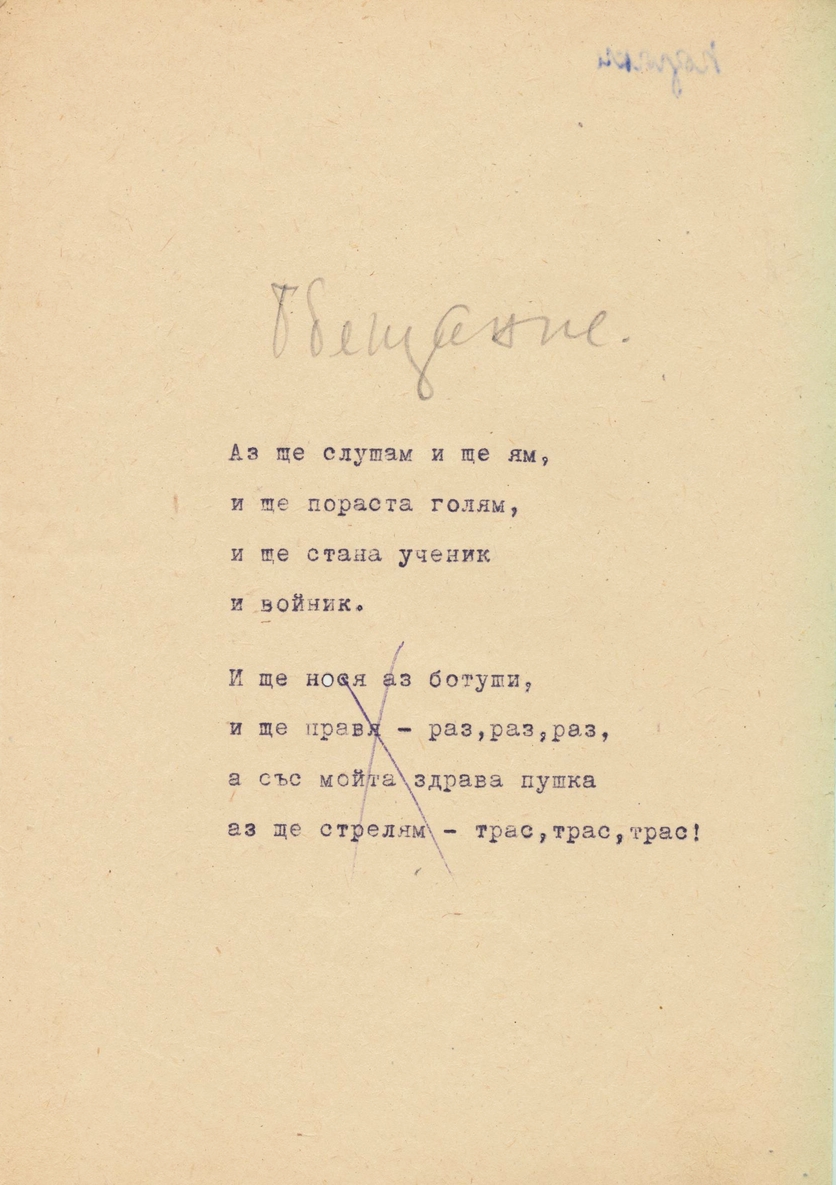 Обещание.
Аз ще слушам и ще ям,
и ще пораста голям,
и ще стана ученик
и войник.
И ще нося аз ботуши,
и ще правя - раз,раз,раз,
а със мойта здрава пушка
аз ще стрелям - трас,трас,трас!